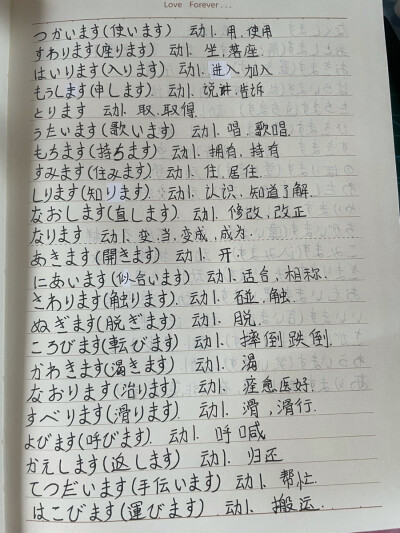 Love Forever...
つかいます(使います) 动1. 用.使用
すわります(座ります) 动1. 坐.落座
はいります(入ります) 动1. 进入 加入
もうします(申します) 动1. 说讲.告诉
とります 动1. 取.取得
うたいます(歌います) 动1. 唱.歌唱
もちます(持ちます) 动1. 拥有.持有
すみます(住みます) 动1. 住.居住
しります(知ります) 动1. 认识.知道了解.
なおします(直します) 动1. 修改.改正
なります 动1. 变.当.变成.成为.
あきます(開きます) 动1. 开.
にあいます(似合います) 动1.适合.相称.
さわります(触ります) 动1. 碰.触.
ぬぎます(脱ぎます) 动1. 脱.
ころびます(転びます) 动1. 摔倒 跌倒.
かわきます(渇きます) 动1. 渴
なおります(治ります) 动1. 痊愈医好.
すべります(滑ります) 动1. 滑,滑行.
よびます(呼びます). 动1. 呼喊
かえします(返します) 动1. 归还
てつだいます(手伝います) 动1. 帮忙.
はこびます(運びます) 动1. 搬运.